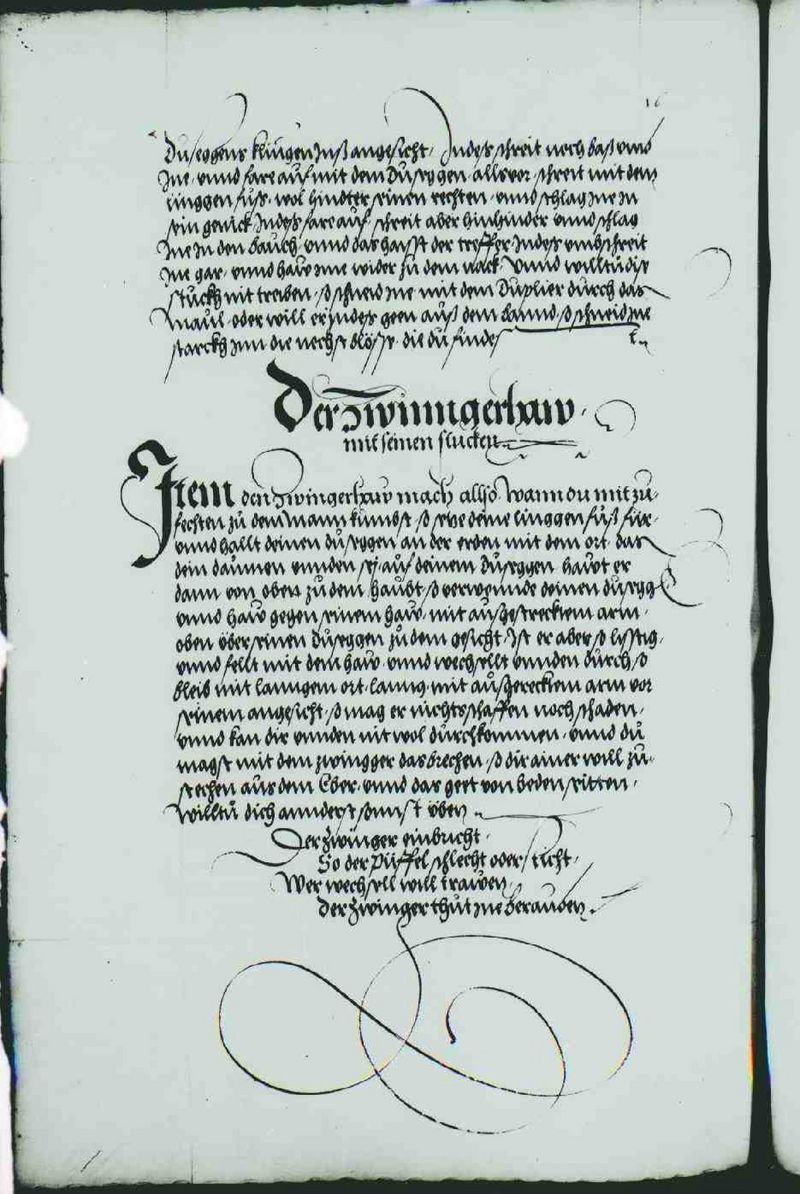 16
Duseggens klingen Inß angesicht, Indes schreit noch baß umb
Ine, vnnd fare auf mit dem Duseggen, alls vor, schreit mit dem
linggen fuß, wol hindter seinen rechten, vnnd schlag Ine In
sein genick Indes fare auf, schreit aber hinhinder vnnd schlag
Ine In den bauch, vnnd das haisst der treffer Indes umbschreit
Ine gar, vnnd haw Ime wider zu dem nack, Vnnd willtu die
stuckh nit treiben, so schneid Ine mit dem Duplier durch das
Maul, oder will er Indes geen auß dem bannd, so schneid Ine
starckh Inn die nechst blösse, die du findest
Der Zwinngerhaw,
mit seinen stucken
Item den Zwingerhaw mach allso, Wann du mit zu,
fechten zu dem Mann kumbst, so setze deine linggen fuß für,
vnnd hallt deinen duseggen an der erden mit dem ort, das
dein daumen vnnden sej, auf deinem Duseggen, hawt er
dann von oben zu dem haubt, so verwennde deinen dusegg
vnnd haw gegen seinem haw, mit außgestrecktem arm,
oben über seinen Duseggen zu dem gesicht, Ist er aber so listig,
vnnd fellt mit dem haw, vnnd wechsellt vnnden durch, so
bleib mit lanngem ort, lanng, mit außgerecktem arm vor
seinem angesicht, so mag er nichts schaffen noch schaden,
vnnd kan dir vnnden nit wol durchkommen, vnnd du
magst mit dem zwingger das brechen, so dir ainer will zu,
stechen aus dem Eber, vnnd das geet von beden seitten,
Willtu dich annderst sunst üben
Der Zwinger einbricht,
So der Püffel schlecht oder sticht,
Wer wechsell will trawen,
Der Zwinger thut Ine berauben